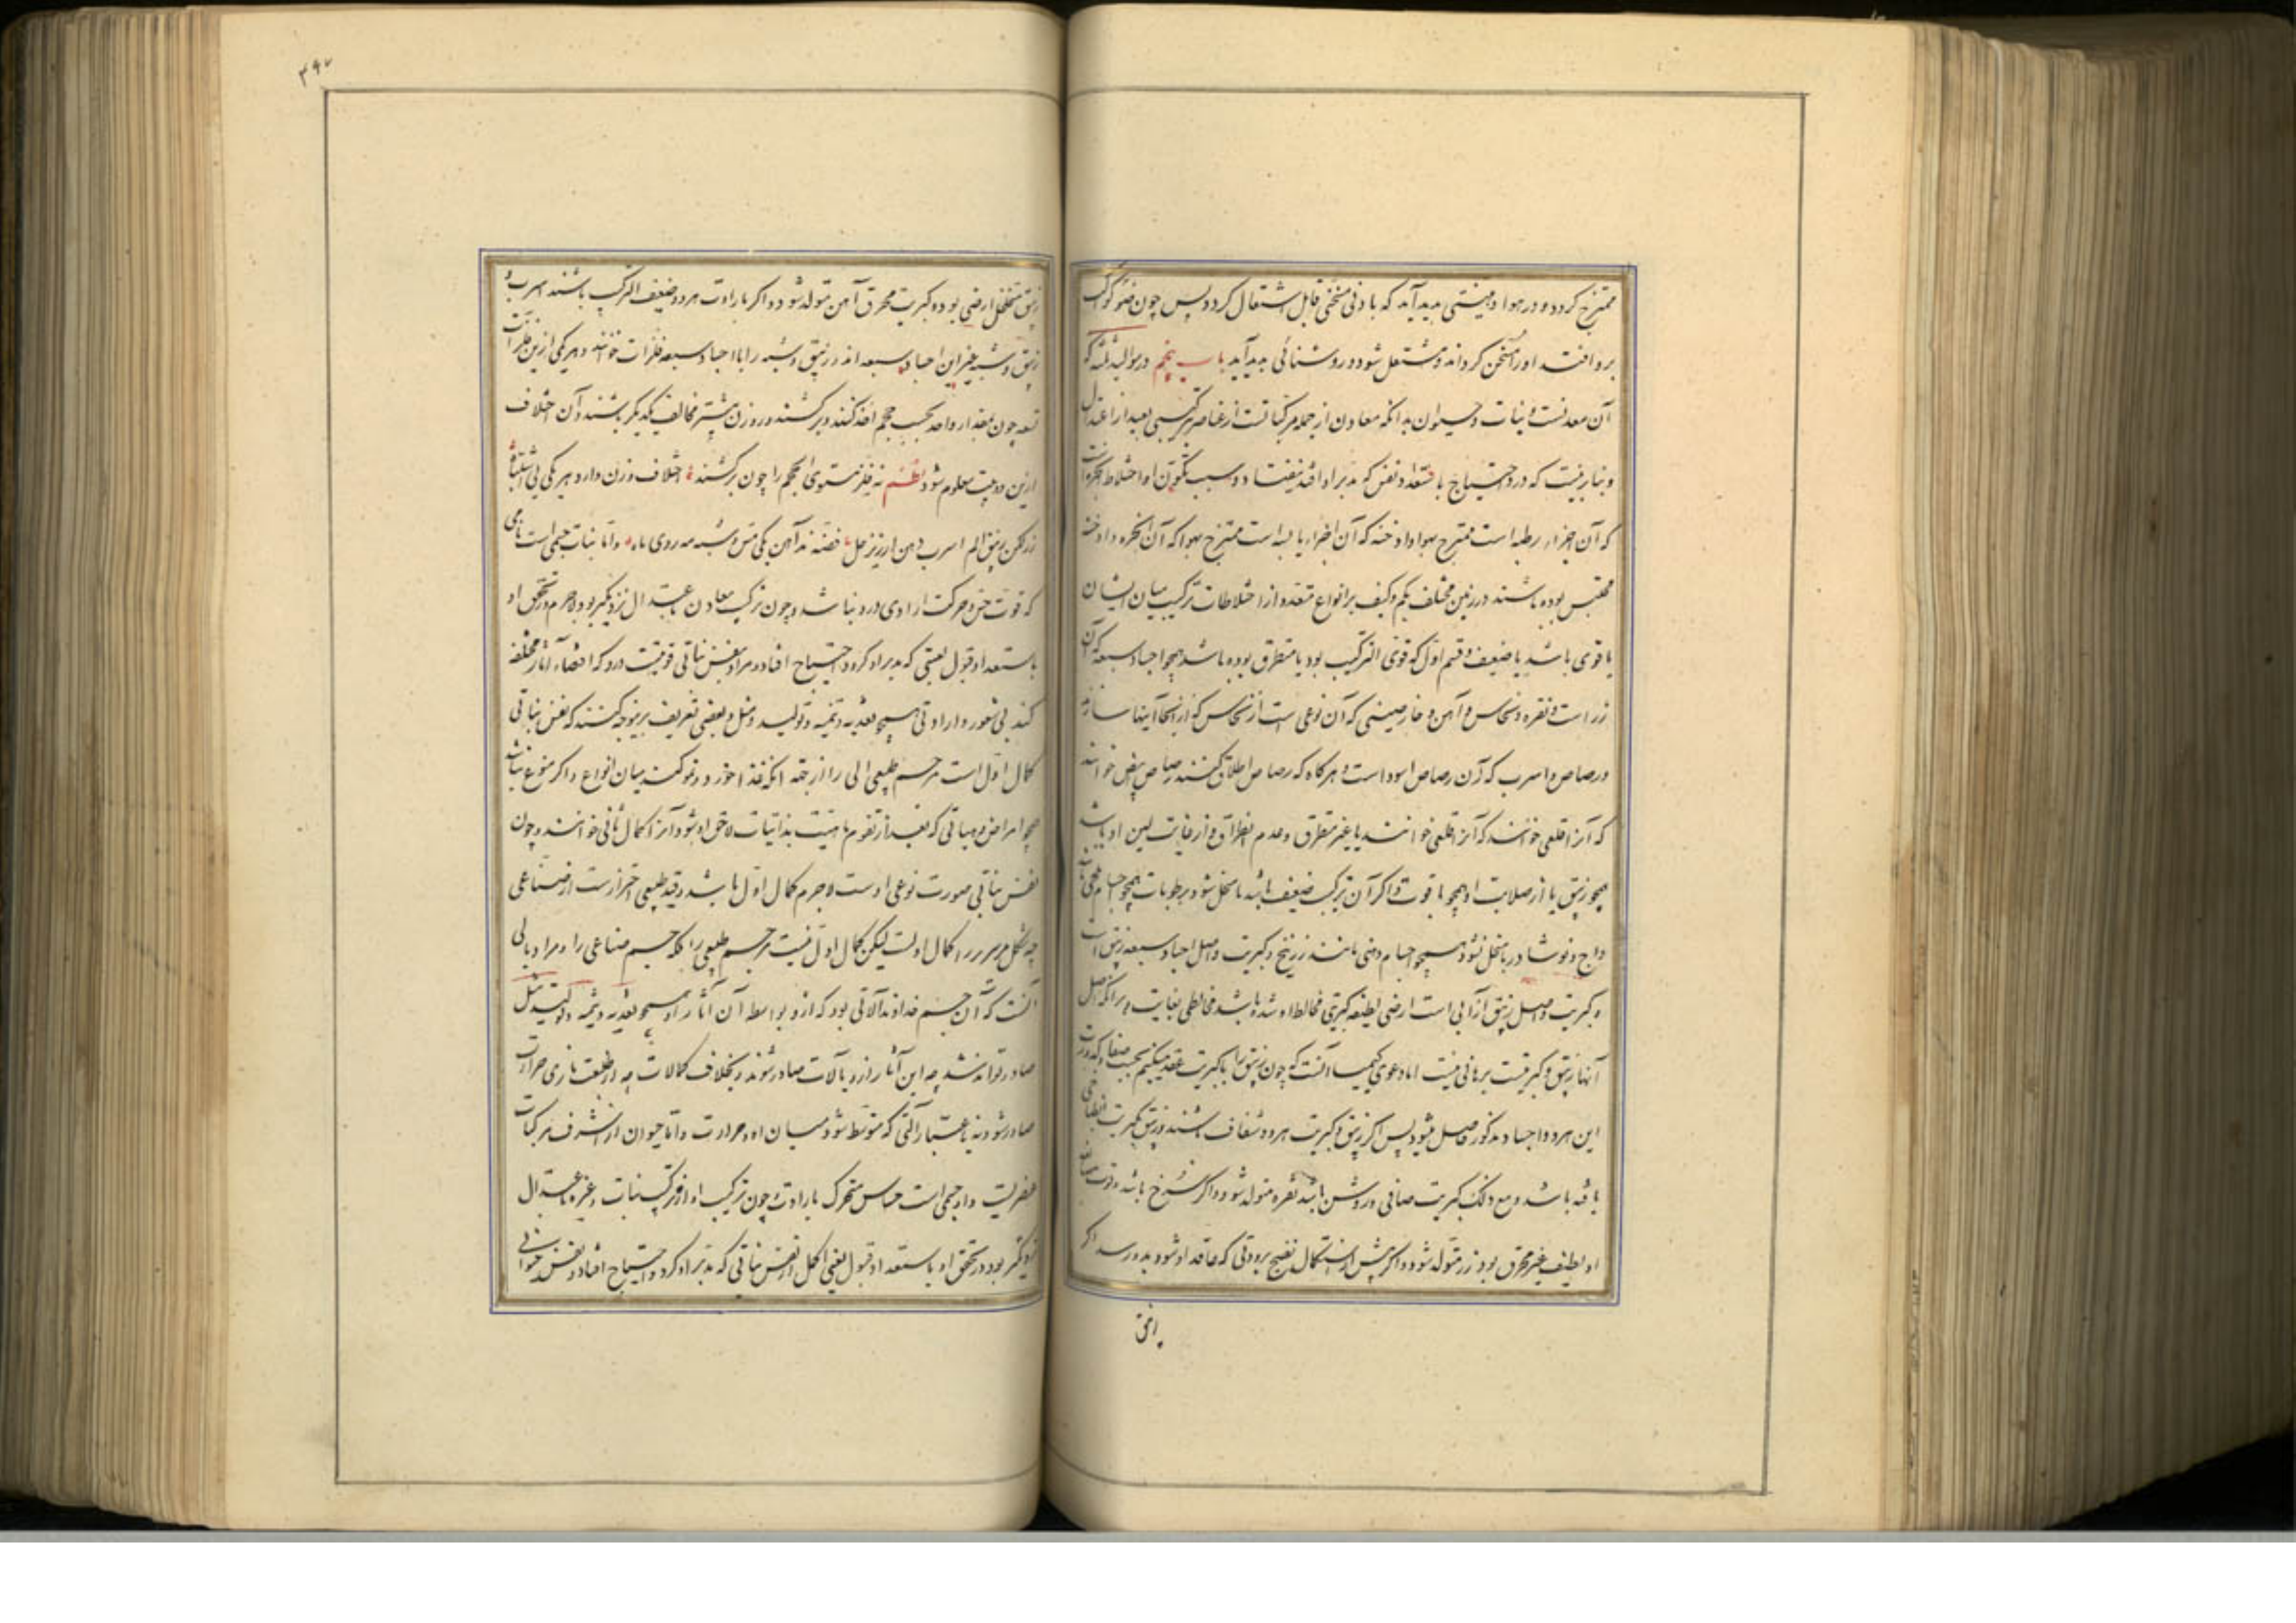 ممتزج کردد و در هوا دهنیتی پدید آید که بادنی مسخنی قابل اشتعال کردد پس چون ضوء کواکب
برو افتد اورا مسخن کرداند و مشتعل شود و روشنائی پدید آید باب پنجم در موالید ثلثه که
آن معدنست و نبات و حیوان بدانکه معادن از جمله مرکباتست از عناصر ترکیبی بعید از اعتدال
و بنابرینست که در احتیاج باستعداد نفس که مدبر او افتد نیفتاد و سبب تکون او اختلاط ابخره است
که آن اجزاء رطبه است ممتزج بهوا و ادخنه که آن اجزاء یابسه است ممتزج بهوا که آن ابخره و ادخنه
محتبس بوده باشند در زمین مختلف بکم و کیف بر انواع متعدده از اختلاطات ترکیب میان ایشان
یا قوی باشد یا ضعیف و قسم اول که قوی الترکیب بود یا متطرق بوده باشد همچو اجساد سبعه که آن
زر است و نقره و نحاس و آهن و خارصینی که آن نوعی است از نحاس که از آنجا آینها سازند
و رصاص و اسرب که آن رصاص اسود است و هر کاه که رصاص اطلاق کنند رصاص ابیض خواهند
که آنرا قلعی خوانند که آنرا قلعی خوانند یا غیر متطرق و عدم انطراق او از غایت لین او باشد
همچو زیبق یا از صلابت او همچو یاقوت و اکر آن ترکیب ضعیف باشد یا منحل شود برطوبات همچو اجسام ملحی
و زاج و نوشادر یا منحل نشود همچو اجسام دهنی مانند زرنیخ و کبریت و اصل اجساد سبعه زیبق است
و کبریت و اصل زیبق از آبی است ارضی لطیفه کبریتی مخالط او شده باشد مخالطی بغایت و بر آنکه اصل
آنها زیبق و کبریتست برهانی نیست اما دعوی کیمیا آنست که چون زیبق را با کبریت عقد میکنیم بحسب صفا و کدورت
این هر دو اجساد مذکور حاصل میشود پس اکر زیبق و کبریت هر دو شفاف باشند و زیبق بکبریت انطباخی
یافته باشد و مع ذلک کبریت صافی و روشن باشد نقره متولد شود و اکر سرخ باشد و قوت صباغه
او لطیف غیر محرق بود زر متولد شود و اکر پیش از استکمال نضج برودتی که عاقد او شود بدو رسد و اکر
زیبق متخلخل ارضی بوده و کبریت محرق آهن متولد شود و اکر با رداءت هر دو ضعیف الترکیب باشند اسرب و
زیبق و شبه غیر این اجساد سبعه اند و زیبق و شبه را با اجساد سبعه فلزات خوانند و هر یکی ازین فلزات
تسعه چون بمقدار واحد بحسب حجم اخذ کنند و برکشند در وزن بیشتر مخالف یکدیکر باشند و آن اختلاف
ازین دو بیت معلوم شود نظم نه فلز مستوی الحجم را چون برکشند اختلاف وزن دارد هر یکی بی اشتباه
زر لکن زیبق الم اسرب دهن ارزیز حل فضه ند آهن یکی مس و شبه مه روی ماه و اما نبات جسمی است نامی
که قوت حس و حرکت ارادی درو نباشد و چون ترکیب معادن باعتدال نزدیکتر بود لاجرم در تحقق او
باستعداد قبول نفسی که مدبر او کردد احتیاج افتاد و مراد بنفس نباتی قوتیست درو که اقتضاء آثار مختلفه
کند بی شعور و ارادتی همچو تغذیه و تنمیه و تولید مثل و بعضی تعریف برینوجه کنند که نفس نباتی
کمال اول است مر جسم طبیعی آلی را از جهة انکه غذا خورد و نمو کند میان انواع و اکر منوع نباشد
همچو امراض و هیآتی که بعد از تقوم ماهیت بذاتیات لاحق او شود آنرا کمال ثانی خوانند و چون
نفس نباتی صورت نوعی اوست لاجرم کمال اول باشد و قید طبیعی احتراز است از صناعی
چه شکل مر سریر را کمال اولست لیکن کمال اول نیست مر جسم طبیعی را بلکه جسم صناعی را و مراد بآلی
آنست که آن جسم خداوند آلاتی بود که ازو بواسطه آن آثار او همچو تغذیه و تنمیه و تولید مثل
صادر تواند شد چه این آثار ازو بآلات صادر شوند و بخلاف کمالات چه از طبیعت ناری حرارت
صادر شود نه باعتبار آلتی که متوسط شود میان او و حرارت و اما حیوان از اشرف مرکبات
عنصریست و او جسمی است حساس متحرک بارادت و چون ترکیب او از ترکیب نبات و غیره باعتدال
نزدیکتر بود در تحقق او باستعداد قبول نفسی اکمل از نفس نباتی که مدبر او کردد احتیاج افتاد و نفس حیوانی